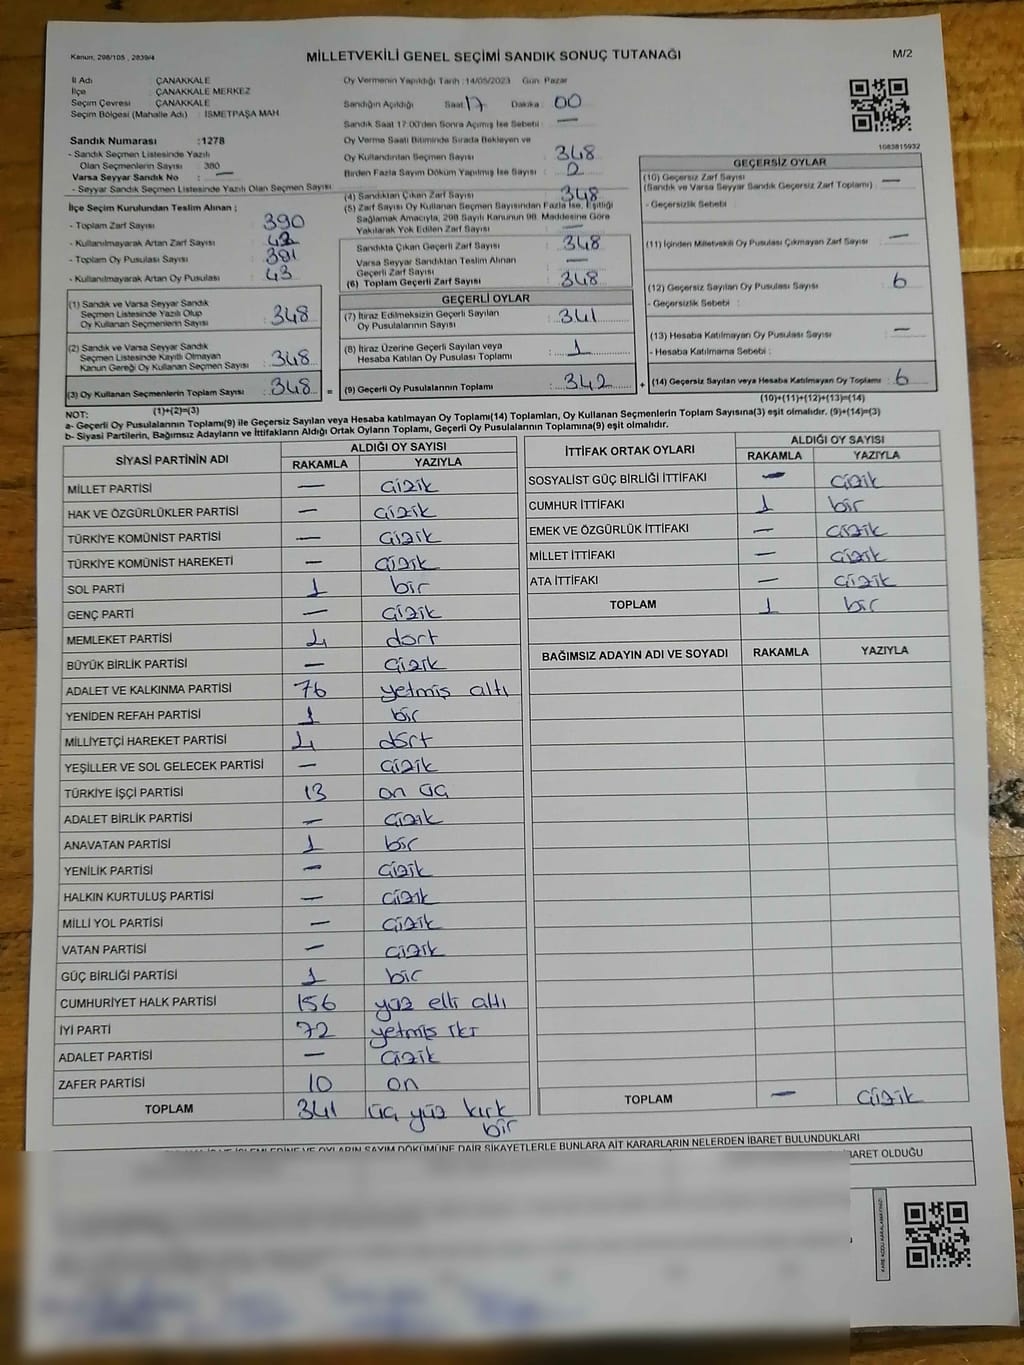 Kanun, 298/105 , 2839/4
MİLLETVEKİLİ GENEL SEÇİMİ SANDIK SONUÇ TUTANAĞI
M/2
İl Adı : ÇANAKKALE
İlçe : ÇANAKKALE MERKEZ
Seçim Çevresi : ÇANAKKALE
Seçim Bölgesi (Mahalle Adı) : İSMETPAŞA MAH
Sandık Numarası :1278
- Sandık Seçmen Listesinde Yazılı
Olan Seçmenlerin Sayısı : 380
Varsa Seyyar Sandık No : —
- Seyyar Sandık Seçmen Listesinde Yazılı Olan Seçmen Sayısı
İlçe Seçim Kurulundan Teslim Alınan ;
- Toplam Zarf Sayısı : 390
- Kullanılmayarak Artan Zarf Sayısı : 42
- Toplam Oy Pusulası Sayısı : 391
- Kullanılmayarak Artan Oy Pusulası : 43
(1) Sandık ve Varsa Seyyar Sandık
Seçmen Listesinde Yazılı Olup
Oy Kullanan Seçmenlerin Sayısı : 348
(2) Sandık ve Varsa Seyyar Sandık
Seçmen Listesinde Kayıtlı Olmayan
Kanun Gereği Oy Kullanan Seçmen Sayısı : 348
(3) Oy Kullanan Seçmenlerin Toplam Sayısı : 348 =
(1)+(2)=(3)
Oy Vermenin Yapıldığı Tarih :14/05/2023 Gün: Pazar
Sandığın Açıldığı Saat:17 Dakika : 00
Sandık Saat 17:00'den Sonra Açılmış İse Sebebi : —
Oy Verme Saati Bitiminde Sırada Bekleyen ve
Oy Kullandırılan Seçmen Sayısı : 348
Birden Fazla Sayım Döküm Yapılmış İse Sayısı : 2
(4) Sandıktan Çıkan Zarf Sayısı : 348
(5) Zarf Sayısı Oy Kullanan Seçmen Sayısından Fazla İse, Eşitliği
Sağlamak Amacıyla, 298 Sayılı Kanunun 98. Maddesine Göre
Yakılarak Yok Edilen Zarf Sayısı : —
Sandıkta Çıkan Geçerli Zarf Sayısı : 348
Varsa Seyyar Sandıktan Teslim Alınan
Geçerli Zarf Sayısı : —
(6) Toplam Geçerli Zarf Sayısı : 348
GEÇERLİ OYLAR
(7) İtiraz Edilmeksizin Geçerli Sayılan
Oy Pusulalarının Sayısı : 341
(8) İtiraz Üzerine Geçerli Sayılan veya
Hesaba Katılan Oy Pusulası Toplamı : 1
(9) Geçerli Oy Pusulalarının Toplamı : 342 +
1083815932
GEÇERSİZ OYLAR
(10) Geçersiz Zarf Sayısı
(Sandık ve Varsa Seyyar Sandık Geçersiz Zarf Toplamı) : —
- Geçersizlik Sebebi :
(11) İçinden Milletvekili Oy Pusulası Çıkmayan Zarf Sayısı : —
(12) Geçersiz Sayılan Oy Pusulası Sayısı : 6
- Geçersizlik Sebebi :
(13) Hesaba Katılmayan Oy Pusulası Sayısı : —
- Hesaba Katılmama Sebebi :
(14) Geçersiz Sayılan veya Hesaba Katılmayan Oy Toplamı : 6
(10)+(11)+(12)+(13)=(14)
NOT:
a- Geçerli Oy Pusulalarının Toplamı(9) ile Geçersiz Sayılan veya Hesaba katılmayan Oy Toplamı(14) Toplamları, Oy Kullanan Seçmenlerin Toplam Sayısına(3) eşit olmalıdır. (9)+(14)=(3)
b- Siyasi Partilerin, Bağımsız Adayların ve İttifakların Aldığı Ortak Oyların Toplamı, Geçerli Oy Pusulalarının Toplamına(9) eşit olmalıdır.
SİYASİ PARTİNİN ADI
ALDIĞI OY SAYISI
RAKAMLA YAZIYLA
MİLLET PARTİSİ — çizik
HAK VE ÖZGÜRLÜKLER PARTİSİ — çizik
TÜRKİYE KOMÜNİST PARTİSİ — çizik
TÜRKİYE KOMÜNİST HAREKETİ — çizik
SOL PARTİ 1 bir
GENÇ PARTİ — çizik
MEMLEKET PARTİSİ 4 dört
BÜYÜK BİRLİK PARTİSİ — çizik
ADALET VE KALKINMA PARTİSİ 76 yetmiş altı
YENİDEN REFAH PARTİSİ 1 bir
MİLLİYETÇİ HAREKET PARTİSİ 4 dört
YEŞİLLER VE SOL GELECEK PARTİSİ — çizik
TÜRKİYE İŞÇİ PARTİSİ 13 on üç
ADALET BİRLİK PARTİSİ — çizik
ANAVATAN PARTİSİ 1 bir
YENİLİK PARTİSİ — çizik
HALKIN KURTULUŞ PARTİSİ — çizik
MİLLİ YOL PARTİSİ — çizik
VATAN PARTİSİ — çizik
GÜÇ BİRLİĞİ PARTİSİ 1 bir
CUMHURİYET HALK PARTİSİ 156 yüz elli altı
İYİ PARTİ 72 yetmiş iki
ADALET PARTİSİ — çizik
ZAFER PARTİSİ 10 on
TOPLAM 341 üç yüz kırk
bir
İTTİFAK ORTAK OYLARI
ALDIĞI OY SAYISI
RAKAMLA YAZIYLA
SOSYALİST GÜÇ BİRLİĞİ İTTİFAKI — çizik
CUMHUR İTTİFAKI 1 bir
EMEK VE ÖZGÜRLÜK İTTİFAKI — çizik
MİLLET İTTİFAKI — çizik
ATA İTTİFAKI — çizik
TOPLAM 1 bir
BAĞIMSIZ ADAYIN ADI VE SOYADI RAKAMLA YAZIYLA
TOPLAM — çizik
OYLARIN SAYIM DÖKÜMÜNE DAİR ŞİKAYETLERLE BUNLARA AİT KARARLARIN NELERDEN İBARET BULUNDUKLARI
İBARET OLDUĞU
KARE KODU KARALAMAYINIZ!